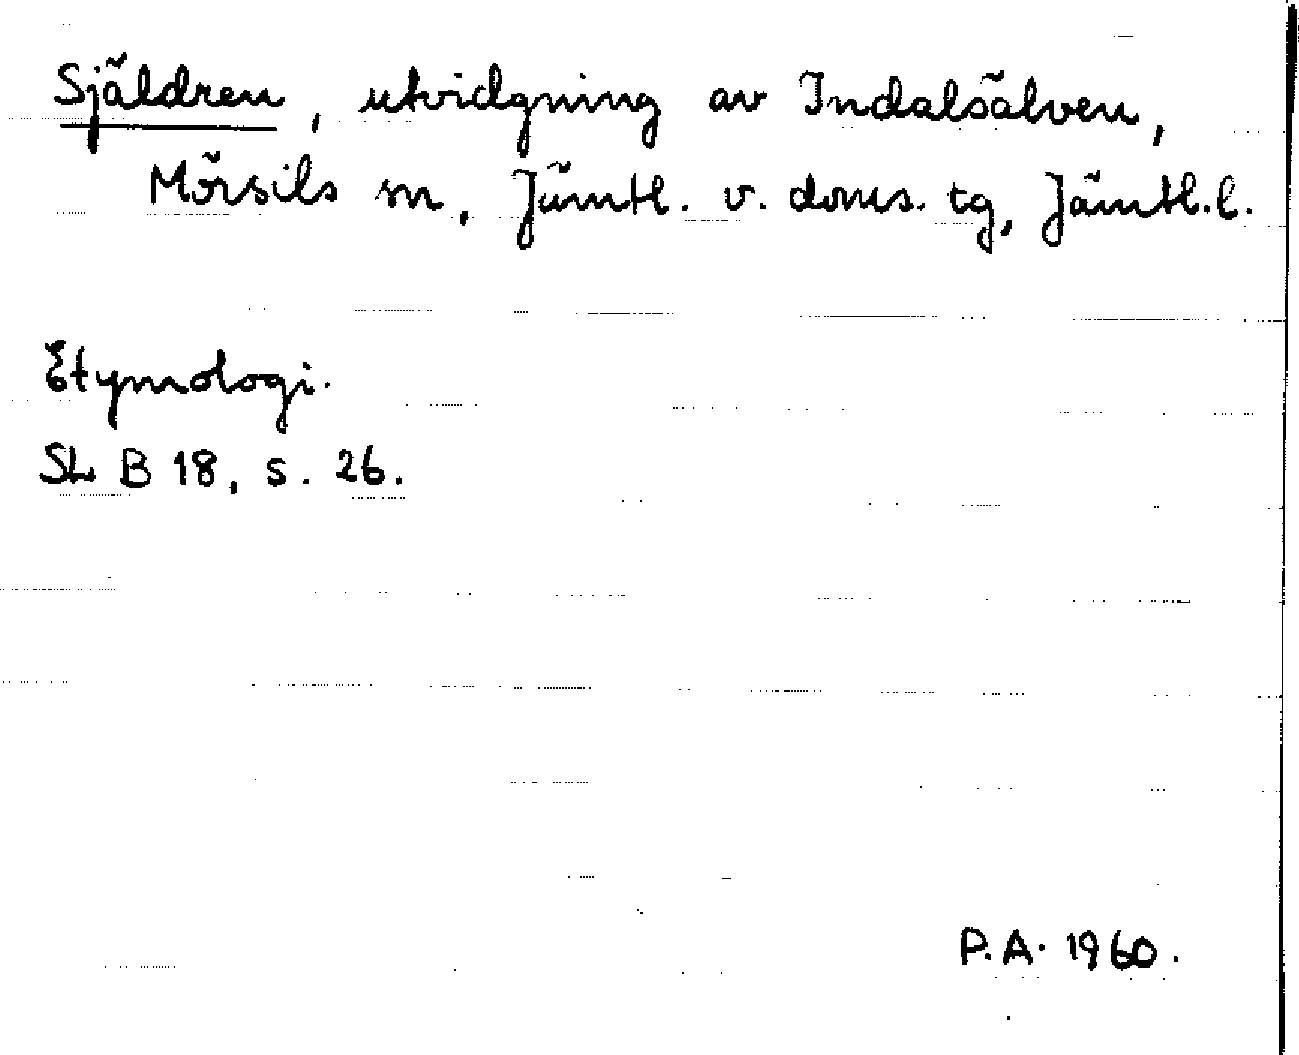 Själdren, utvidgning av Indalsälven,
Mörsils sn, Jämtl. v. doms. tg, Jämtl.l.
Etymologi.
SL B 18, s. 26.
P.A. 1960.